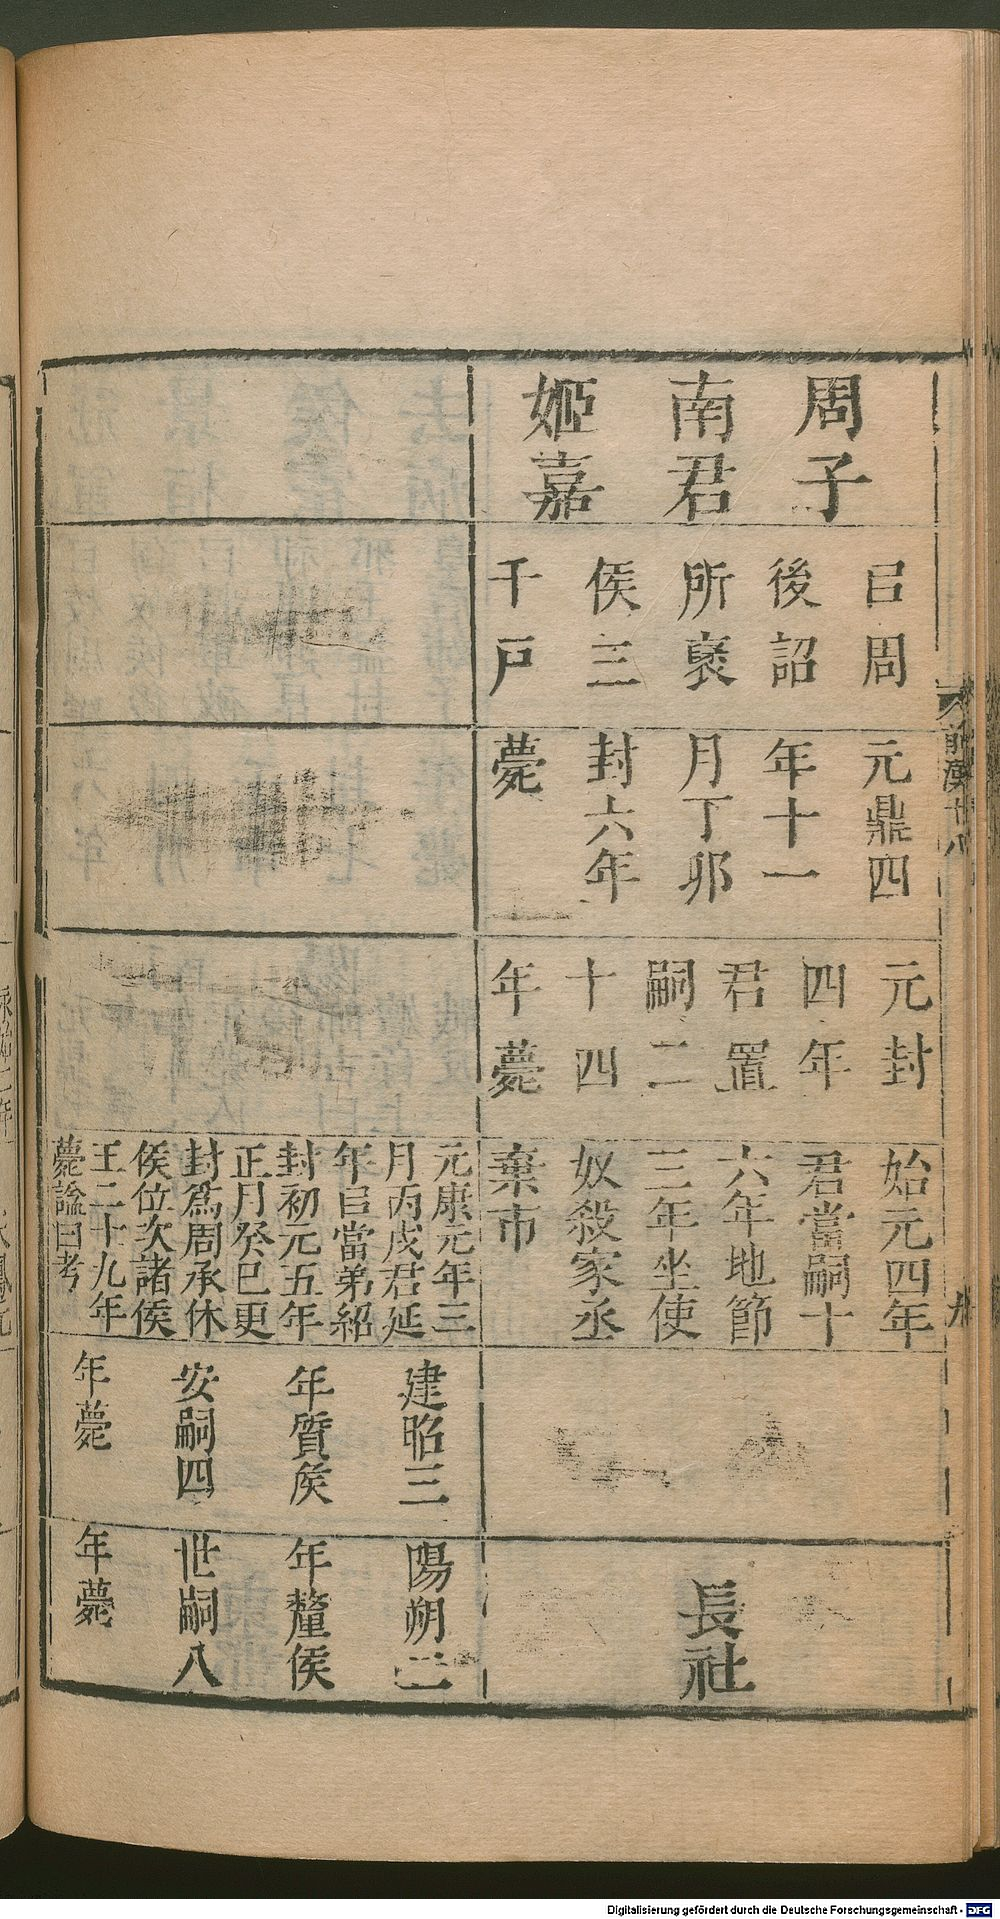 周子
南君
姬嘉
㠯周
後詔
所襃
侯三
千戸
元鼎四
年十一
月丁卯
封六年
薨
元封
四年
君置
嗣二
十四
年薨
始元四年
君當嗣十
六年地節
三年坐使
奴殺家丞
棄市
長社
元康元年三
月丙戌君延
年㠯當弟紹
封初元五年
正月癸巳更
封爲周承休
侯位次諸侯
王二十九年
薨諡曰考
建昭三
年質侯
安嗣四
年薨
陽朔二
年釐侯
世嗣八
年薨
前漢十八
九
Digitalisierung gefördert durch die Deutsche Forschungsgemeinschaft - DFG